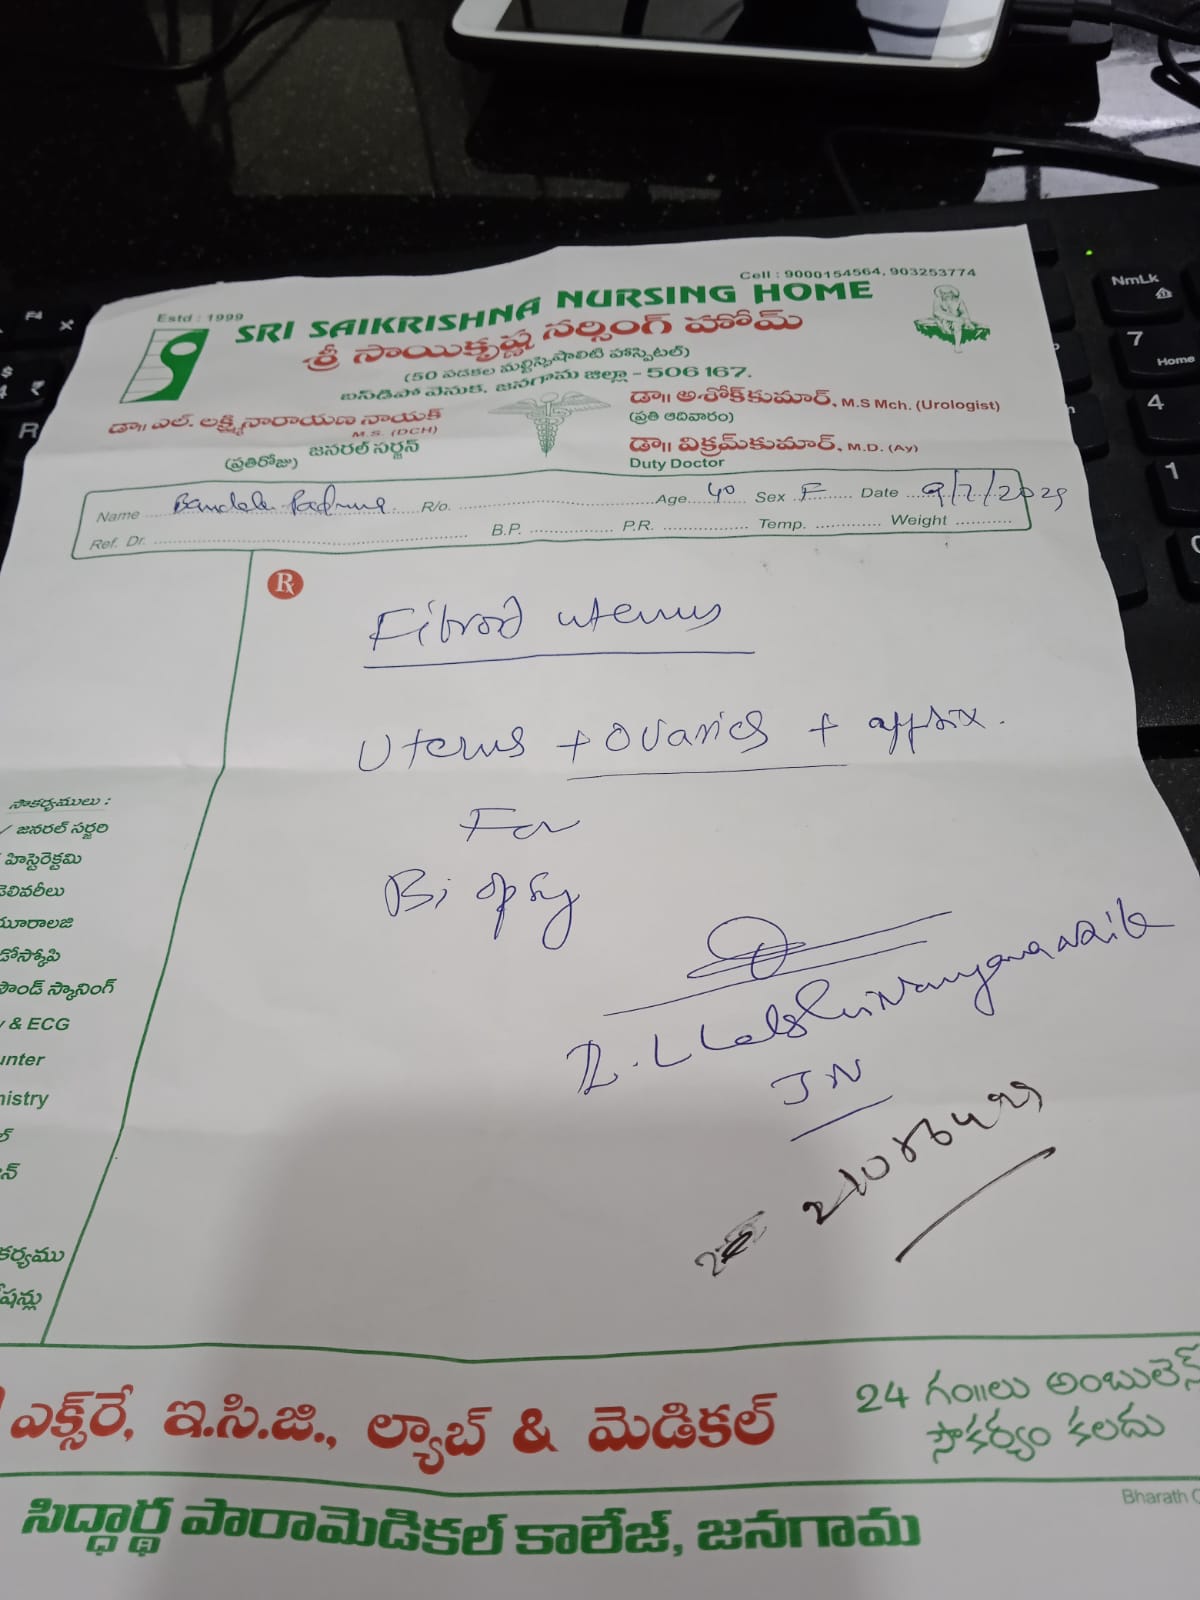 Cell : 9000154564, 903253774
Estd : 1999
SRI SAIKRISHNA NURSING HOME
శ్రీ సాయికృష్ణ నర్సింగ్ హోమ్
(50 పడకల మల్టిస్పెషాలిటి హాస్పిటల్)
బస్‌డిపో వెనుక, జనగామ జిల్లా - 506 167.
డా॥ ఎల్. లక్ష్మినారాయణ నాయక్
M.S. (DCH)
జనరల్ సర్జన్
(ప్రతిరోజు)
డా॥ అశోక్‌కుమార్, M.S Mch. (Urologist)
(ప్రతి ఆదివారం)
డా॥ విక్రమ్‌కుమార్, M.D. (Ay)
Duty Doctor
Name R/o. Age 40 Sex F Date 9/7/2025
Ref. Dr. B.P. P.R. Temp. Weight
Rx
Fibroid uterus
Uterus + Ovaries +
For
Biopsy
JN
సౌకర్యములు :
జనరల్ సర్జరి
హిస్టెరెక్టమి
డెలివరీలు
స్కానింగ్
& ECG
ఎక్స్‌రే, ఇ.సి.జి., ల్యాబ్ & మెడికల్
24 గం॥లు అంబులెన్స్
సౌకర్యం కలదు
Bharath
సిద్ధార్థ పారామెడికల్ కాలేజ్, జనగామ
NmLk
7
Home
4
1
F4
R